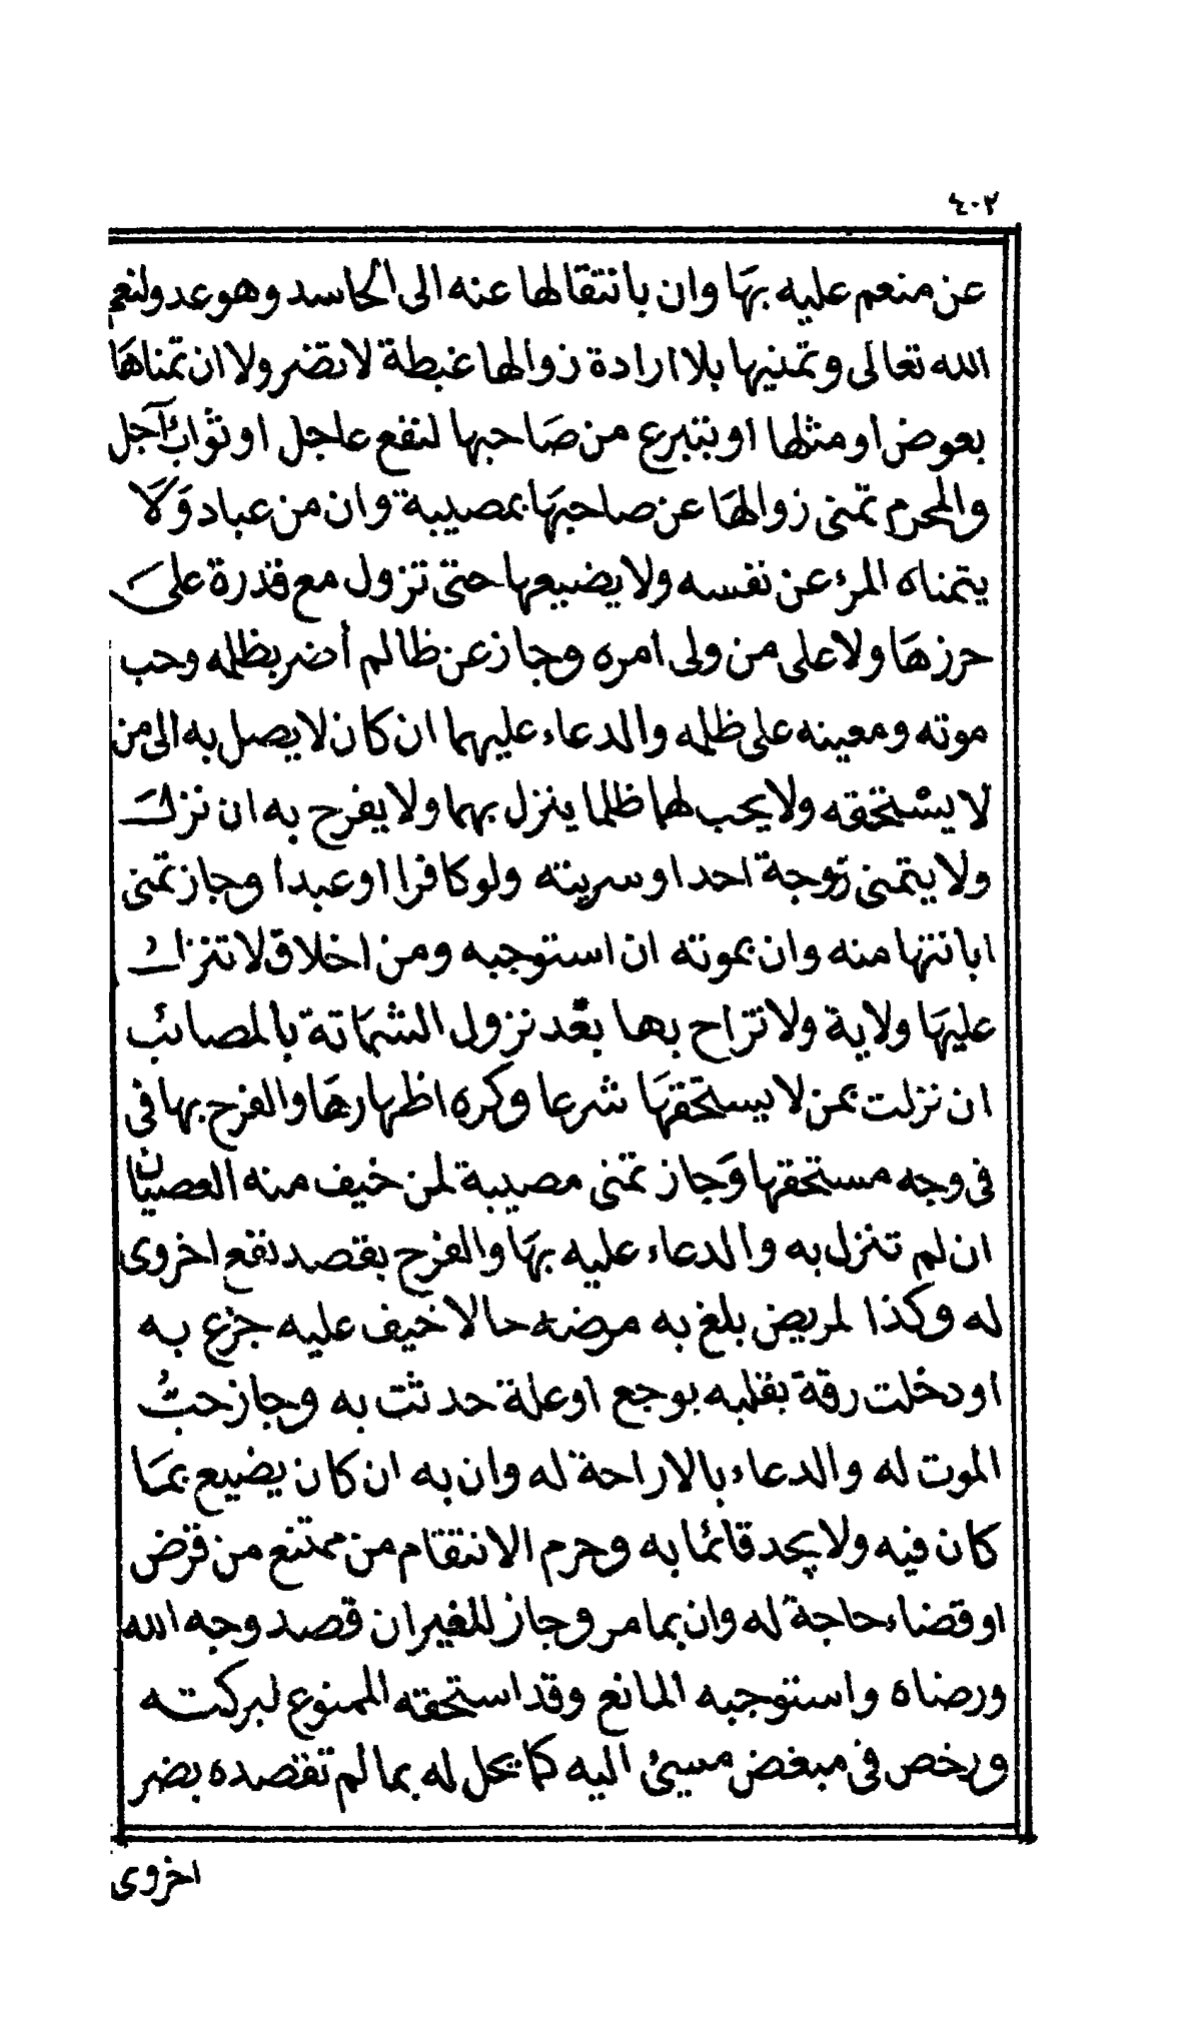 ٤٠٢
عن منعم عليه بهَا وان بانتقالها عنه الى الحاسد وهو عدو لنعم
الله تعالى وتمنيها بلا ارادة زوالها غبطة لا تضر ولا ان تمناهَا
بعوض او مثلها او بتبرع من صَاحبها لنفع عاجل او ثواب آجل
والمحرم تمنى زوالهَا عن صاحبهَا بمصيبة وان من عباد وَلَا
يتمناه المرء عن نفسه ولا يضيعها حتى تزول مع قدرة على
حرزهَا ولا على من ولى امره وجاز عن ظالم أضر بظلمه وحب
موته ومعينه على ظلمه والدعاء عليهما ان كان لا يصل به الى من
لا يسْتحقه ولا يحب لهما ظلما ينزل بهما ولا يفرح به ان نزل
ولا يتمنى زوجة احد او سريته ولو كافرا او عبدا وجاز تمنى
ابانتها منه وان بموته ان استوجبه ومن اخلاق لا تنزل
عليهَا ولاية ولا تزاح بها بعْد نزول الشمَاتة بالمصائب
ان نزلت بمن لا يستحقهَا شرعا وكره اظهارهَا والفرح بها فى
فى وجه مستحقها وَجاز تمنى مصيبة لمن خيف منه العصيان
ان لم تنزل به والدعاء عليه بهَا والفرح بقصد نفع اخروى
له وكذا لمريض بلغ به مرضه حالا خيف عليه جزع به
او دخلت رقة بقلبه بوجع او علة حدثت به وجاز حبُّ
الموت له والدعاء بالاراحة له وان به ان كان يضيع بمَا
كان فيه ولا يجد قائما به وحرم الانتقام من ممتنع من قرض
او قضاء حاجة له وان بما مر وجاز للغير ان قصد وجه الله
ورضاه واستوجبه المانع وقد استحقه الممنوع لبركته
ورخص فى مبغض مسيئ اليه كما يحل له بما لم تقصده بضر
اخروى